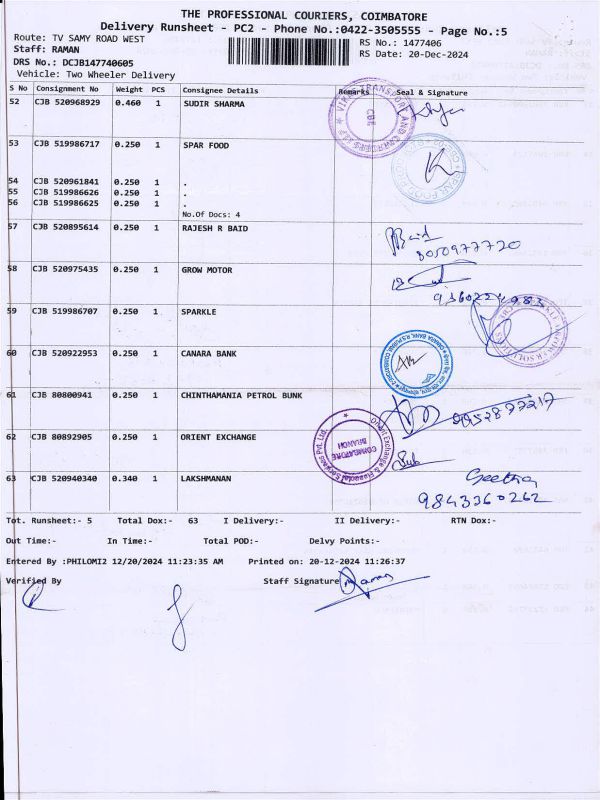 THE PROFESSIONAL COURIERS, COIMBATORE
Delivery Runsheet - PC2 - Phone No.:0422-3505555 - Page No.:5
Route: TV SAMY ROAD WEST
RS No.: 1477406
Staff: RAMAN
RS Date: 20-Dec-2024
DRS No.: DCJB147740605
Vehicle: Two Wheeler Delivery
S No Consignment No Weight PCS Consignee Details Remarks Seal & Signature
52 CJB 520968929 0.460 1 SUDIR SHARMA
53 CJB 519986717 0.250 1 SPAR FOOD
54 CJB 520961841 0.250 1 .
55 CJB 519986626 0.250 1 .
56 CJB 519986625 0.250 1 .
No.Of Docs: 4
57 CJB 520895614 0.250 1 RAJESH R BAID
8050977720
58 CJB 520975435 0.250 1 GROW MOTOR
9360224983
59 CJB 519986707 0.250 1 SPARKLE
60 CJB 520922953 0.250 1 CANARA BANK
61 CJB 80800941 0.250 1 CHINTHAMANIA PETROL BUNK
62 CJB 80892905 0.250 1 ORIENT EXCHANGE
COIMBATORE
BRANCH
63 CJB 520940340 0.340 1 LAKSHMANAN
Geetha
9843360262
Tot. Runsheet:- 5 Total Dox:- 63 I Delivery:- II Delivery:- RTN Dox:-
Out Time:- In Time:- Total POD:- Delvy Points:-
Entered By :PHILOMI2 12/20/2024 11:23:35 AM Printed on: 20-12-2024 11:26:37
Verified By Staff Signature Raman